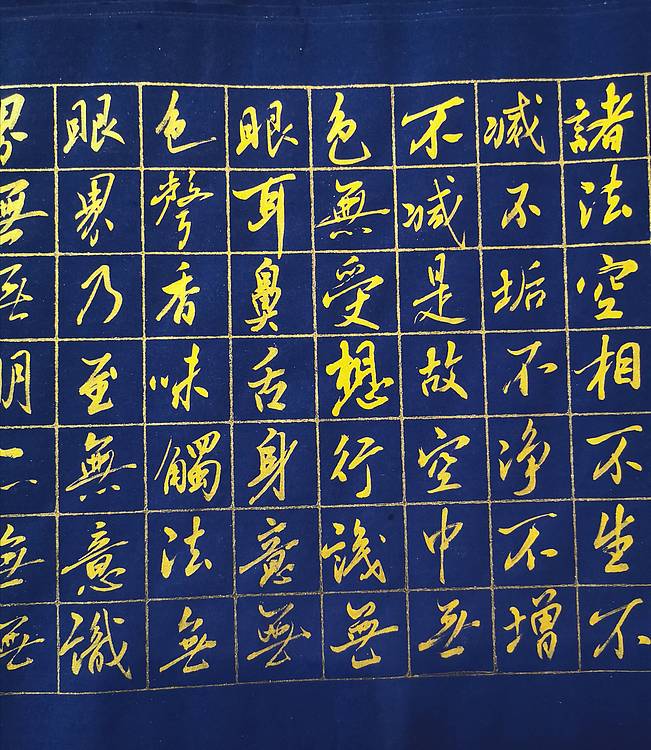 諸法空相不生不
滅不垢不净不增
不減是故空中無
色無受想行識無
眼耳鼻舌身意無
色聲香味觸法無
眼界乃至無意識
界無無明亦無無